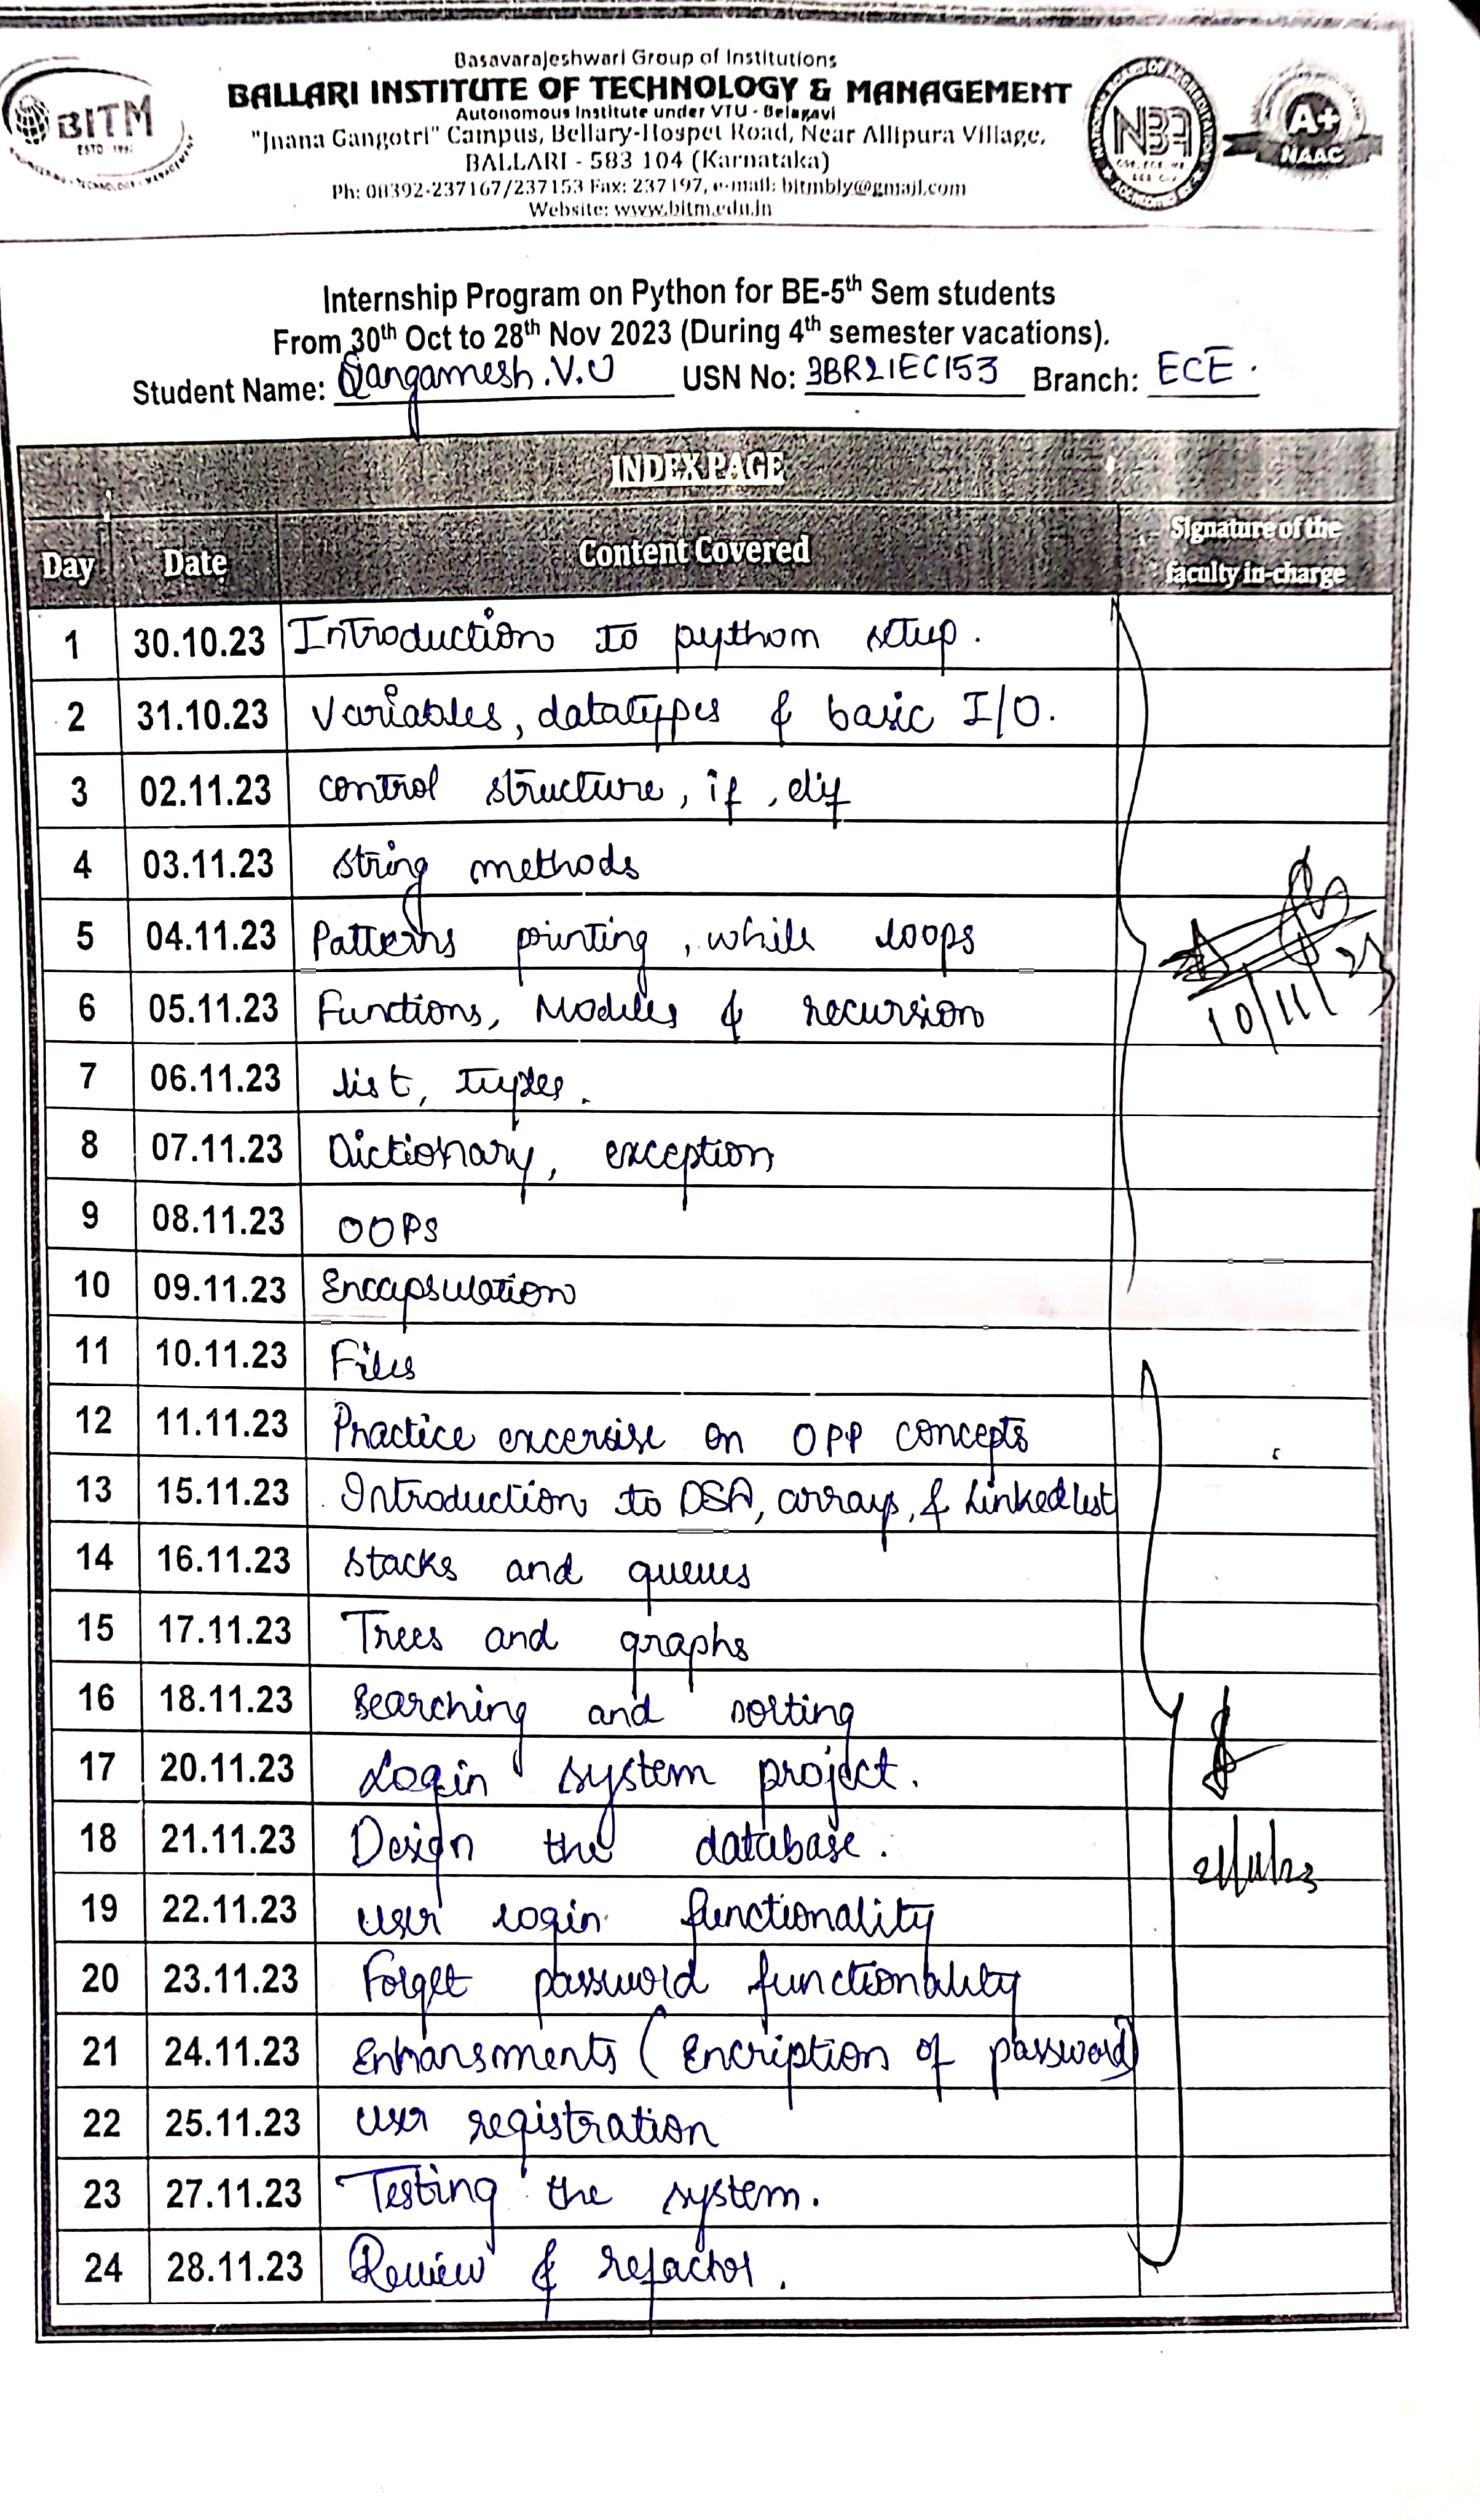 Basavarajeshwari Group of Institutions
BALLARI INSTITUTE OF TECHNOLOGY & MANAGEMENT
Autonomous Institute under VTU - Belagavi
"Jnana Gangotri" Campus, Bellary-Hospet Road, Near Allipura Village,
BALLARI - 583 104 (Karnataka)
Ph: 08392-237167/237153 Fax: 237197, e-mail: bitmbly@gmail.com
Website: www.bitm.edu.in
BITM
NBA
A+
NAAC
Internship Program on Python for BE-5th Sem students
From 30th Oct to 28th Nov 2023 (During 4th semester vacations).
Student Name: Sangamesh.V.U USN No: 3BR21EC153 Branch: ECE.
INDEX PAGE
Day Date Content Covered Signature of the faculty in-charge
1 30.10.23 Introduction to python setup.
2 31.10.23 Variables, datatypes & basic I/O.
3 02.11.23 control structure, if, elif
4 03.11.23 String methods
5 04.11.23 Patterns printing, while loops
6 05.11.23 Functions, Modules & recursion
10/11/23
7 06.11.23 list, tuples.
8 07.11.23 Dictionary, exception
9 08.11.23 OOPS
10 09.11.23 Encapsulation
11 10.11.23 Files
12 11.11.23 Practice excersise on OPP concepts
13 15.11.23 Introduction to DSA, arrays, & Linked list
14 16.11.23 stacks and queues
15 17.11.23 Trees and graphs
16 18.11.23 Searching and sorting
17 20.11.23 Login system project.
18 21.11.23 Design the database.
19 22.11.23 user login functionality
20 23.11.23 Forget password functionality
21 24.11.23 Enhansments (Encription of password)
22 25.11.23 user registration
23 27.11.23 Testing the system.
24 28.11.23 Review & refactor.